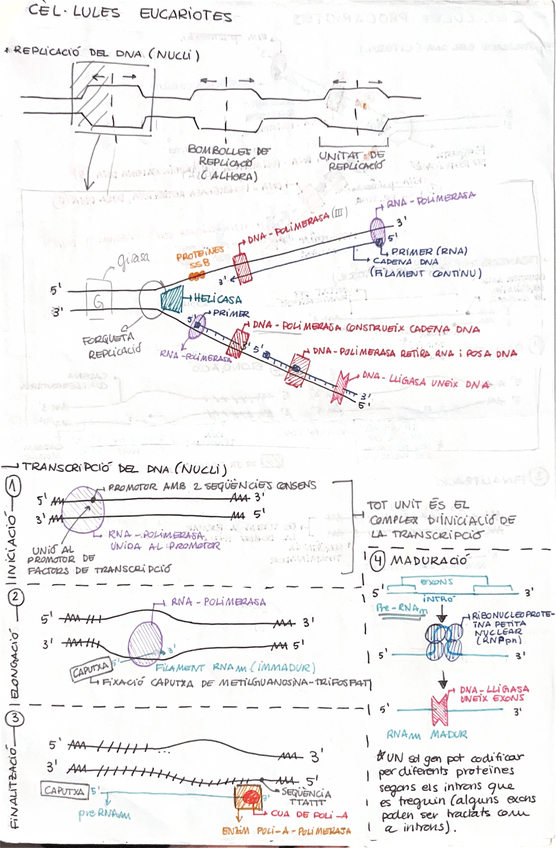 CÈL·LULES EUCARIOTES
* REPLICACIÓ DEL DNA (NUCLI)
BOMBOLLES DE
REPLICACIÓ
(ALHORA)
UNITAT DE
REPLICACIÓ
RNA-POLIMERASA
DNA-POLIMERASA (III)
3'
5'
PROTEÏNES
SSB
PRIMER (RNA)
CADENA DNA
(FILAMENT CONTINU)
3'
girasa
5'
3'
G
HELICASA
FORQUETA
REPLICACIÓ
5'
PRIMER
RNA-POLIMERASA
DNA-POLIMERASA CONSTRUEIX CADENA DNA
5'
DNA-POLIMERASA RETIRA RNA i POSA DNA
DNA-LLIGASA UNEIX DNA
3'
5'
TRANSCRIPCIÓ DEL DNA (NUCLI)
1
INICIACIÓ
PROMOTOR AMB 2 SEQÜÈNCIES CONSENS
5' 3'
3' 5'
RNA-POLIMERASA
UNIDA AL PROMOTOR
UNIÓ AL
PROMOTOR DE
FACTORS DE TRANSCRIPCIÓ
TOT UNIT ÉS EL
COMPLEX D'INICIACIÓ DE
LA TRANSCRIPCIÓ
2
ELONGACIÓ
RNA-POLIMERASA
5' 3'
3' 5'
CAPUTXA
5' 3'
FILAMENT RNAm (IMMADUR)
FIXACIÓ CAPUTXA DE METILGUANOSINA-TRIFOSFAT
3
FINALITZACIÓ
5' 3'
3' 5'
CAPUTXA
pre RNAm
3'
SEQÜÈNCIA
TTATTT
CUA DE POLI-A
ENZIM POLI-A-POLIMERASA
4 MADURACIÓ
EXONS
5' 3'
INTRÓ
Pre-RNAm
RIBONUCLEOPROTE-
ÏNA PETITA
NUCLEAR
(RNPpn)
5' 3'
DNA-LLIGASA
UNEIX EXONS
5' 3'
RNAm MADUR
* UN sol gen pot codificar
per diferents proteïnes
segons els introns que
es treguin (alguns exons
poden ser tractats com
a introns).